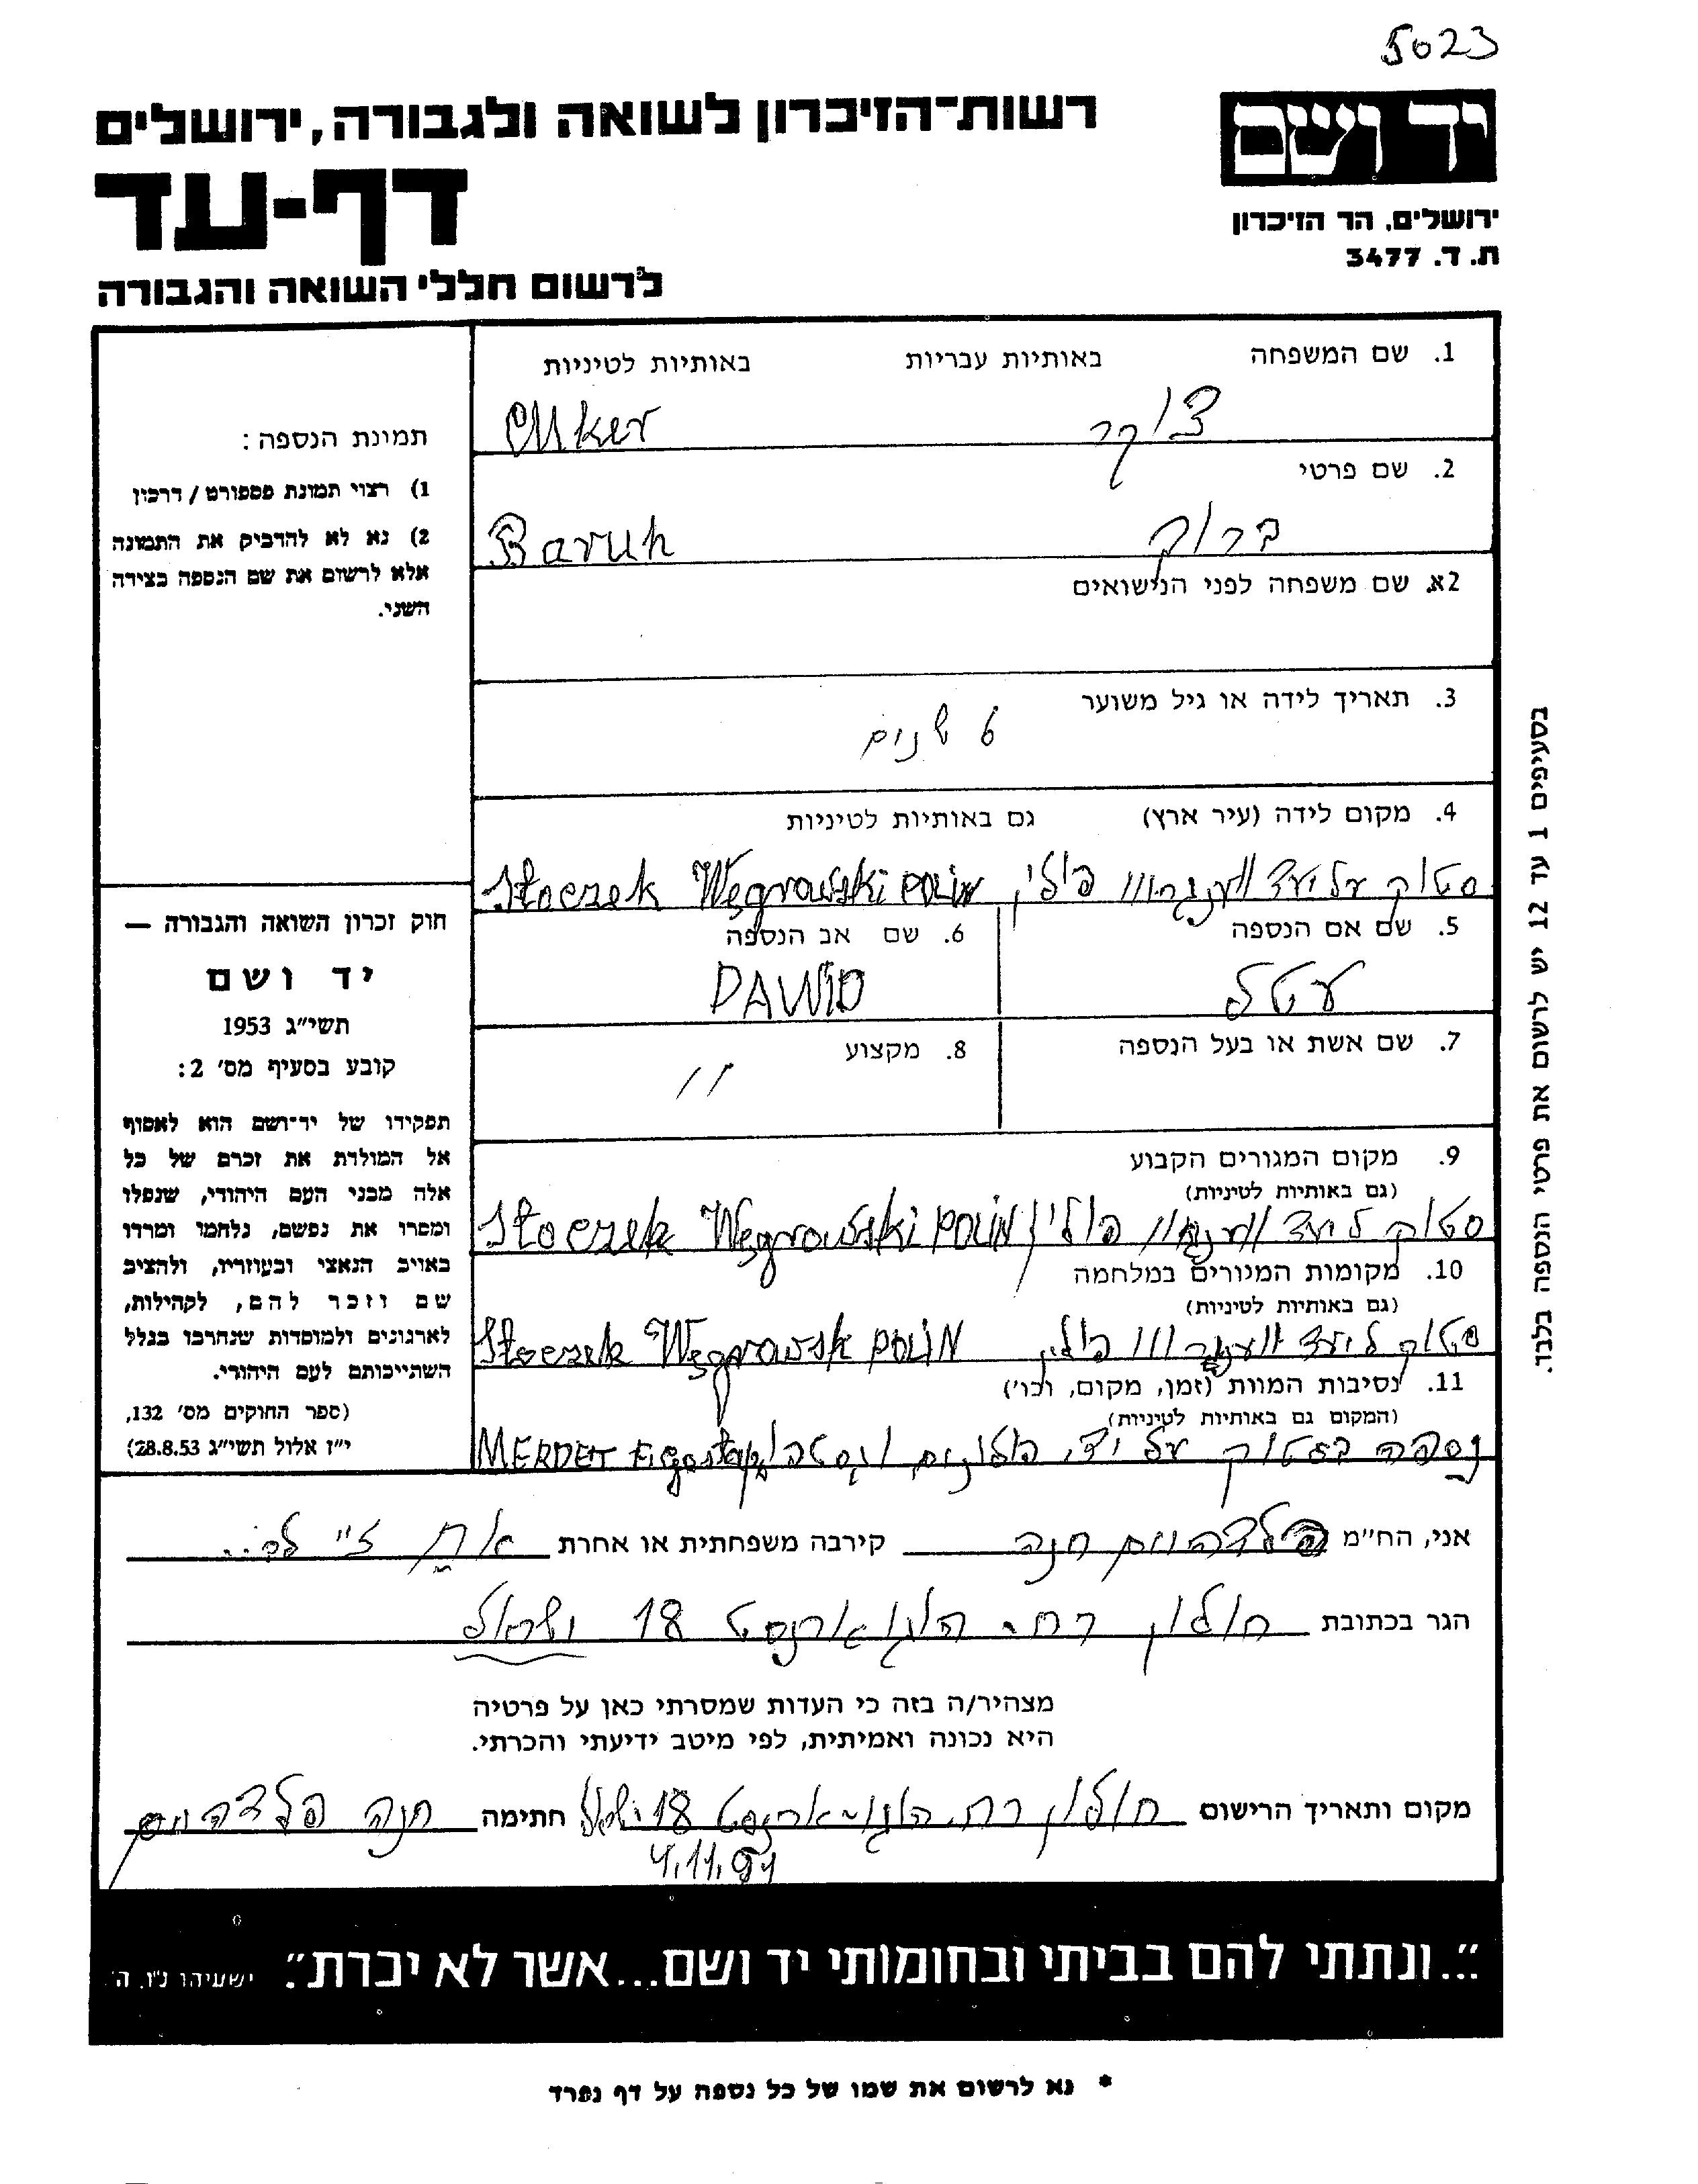 5023
רשות־הזיכרון לשואה ולגבורה, ירושלים
יד ושם
דף-עד
ירושלים, הר הזיכרון
ת. ד. 3477
לרשום חללי השואה והגבורה
1. שם המשפחה באותיות עבריות באותיות לטיניות
צוקר Cuker
2. שם פרטי
ברוך Baruh
2א. שם משפחה לפני הנישואים
3. תאריך לידה או גיל משוער
6 שנים
4. מקום לידה (עיר ארץ) גם באותיות לטיניות
סטוק על יד ווענגרוו פולין Stoczek Węgrowski POLIN
5. שם אם הנספה
עטל
6. שם אב הנספה
DAWID
7. שם אשת או בעל הנספה
8. מקצוע
11
9. מקום המגורים הקבוע
(גם באותיות לטיניות)
סטוק ליד ווענגרוו פולין Stoczek Węgrowski POLIN
10. מקומות המגורים במלחמה
(גם באותיות לטיניות)
סטוק ליד ווענגרוו פולין Stoczek Węgrowsk POLIN
11. נסיבות המוות (זמן, מקום, וכו')
(המקום גם באותיות לטיניות)
נספה בסטוק על יד פולנים
תמונת הנספה:
1) רצוי תמונת פספורט / דרכון
2) נא לא להדביק את התמונה
אלא לרשום את שם הנספה בצידה
השני.
חוק זכרון השואה והגבורה —
יד ושם
תשי"ג 1953
קובע בסעיף מס' 2:
תפקידו של יד־ושם הוא לאסוף
אל המולדת את זכרם של כל
אלה מבני העם היהודי, שנפלו
ומסרו את נפשם, נלחמו ומרדו
באויב הנאצי ובעוזריו, ולהציב
שם וזכר להם, לקהילות,
לארגונים ולמוסדות שנחרבו בגלל
השתייכותם לעם היהודי.
(ספר החוקים מס' 132,
י"ז אלול תשי"ג 28.8.53)
בסעיפים 1 עד 12 יש לרשום את פרטי הנספה בלבד.
אני, הח"מ פלדהיים חנה קירבה משפחתית או אחרת אח
הגר בכתובת חולון רח. 18 ישראל
מצהיר/ה בזה כי העדות שמסרתי כאן על פרטיה
היא נכונה ואמיתית, לפי מיטב ידיעתי והכרתי.
מקום ותאריך הרישום חולון רח. 18 ישראל חתימה חנה פלדהיים
4.11.91
"...ונתתי להם בביתי ובחומותי יד ושם...אשר לא יכרת". ישעיהו נ"ו, ה'
* נא לרשום את שמו של כל נספה על דף נפרד